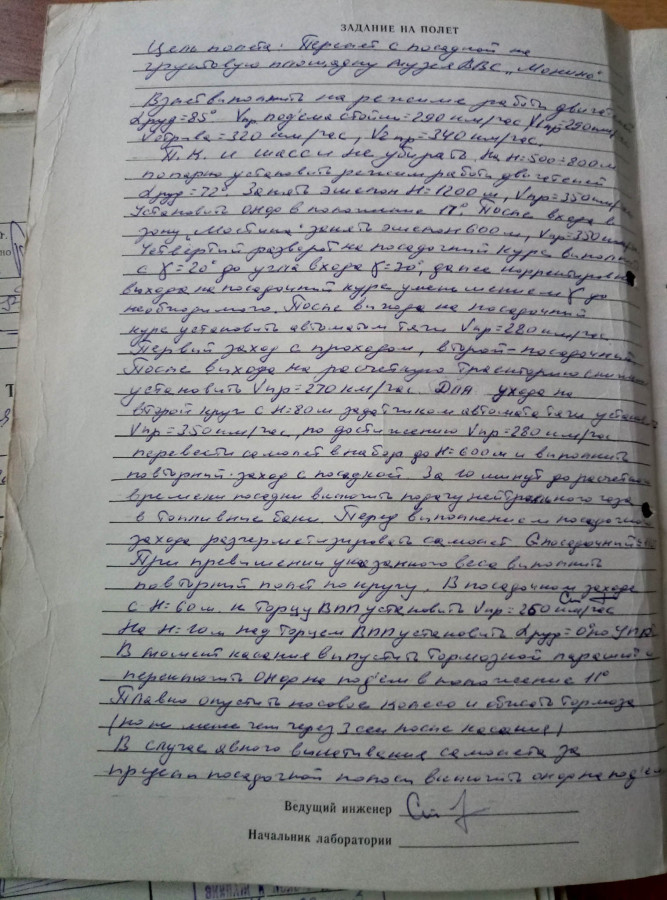 ЗАДАНИЕ НА ПОЛЕТ
Цель полета: Перелет с посадкой на
грунтовую площадку музея ВВС „Монино"
Взлет выполнить на режиме работы двигателей
αруд=85° Vпр подъема стойки=290 км/час
Vотрыва=320 км/час, V2пр=340 км/час.
П.К. и шасси не убирать. На H=500÷800м
попарно установить режим работы двигателей
αруд=72° Занять эшелон H=1200м, Vпр=350км/час
Установить ОНОО в положение 11°. После входа в
зону занять эшелон 600м, Vпр=350км/час
Четвертый разворот на посадочный курс выполнить
с γ=20° до угла входа γ=30°, далее
выхода на посадочный курс уменьшением γ до
необходимого. После выхода на посадочный
курс установить автоматом тяги Vпр=280 км/час
Первый заход с проходом, второй – посадочный
После выхода на расчетную траекторию снижения
установить Vпр=270 км/час. Для ухода на
второй круг с H=80м задатчиком автомата тяги установить
Vпр=350км/час, по достижению Vпр=280 км/час
перевести самолет в набор до H=600м и выполнить
повторный заход с посадкой. За 10 минут до расчетного
времени посадки включить подачу нейтрального газа
в топливные баки. Перед выполнением посадочного
захода разгерметизировать самолет Gпосадочный
При превышении указанного веса выполнить
повторный полет по кругу. В посадочном заходе
с H=60м. к торцу ВПП установить Vпр=260 км/час
На H=10м над торцем ВПП установить αруд=0° по УПРТ
В момент касания выпустить тормозной парашют и
переключить на под'ем в положение 11°
Плавно опустить носовое колесо и обжать тормоза
(но не менее чем через 3 сек после касания)
В случае явного выкатывания самолета за
пределы посадочной полосы включить на под'ем
Ведущий инженер
Начальник лаборатории